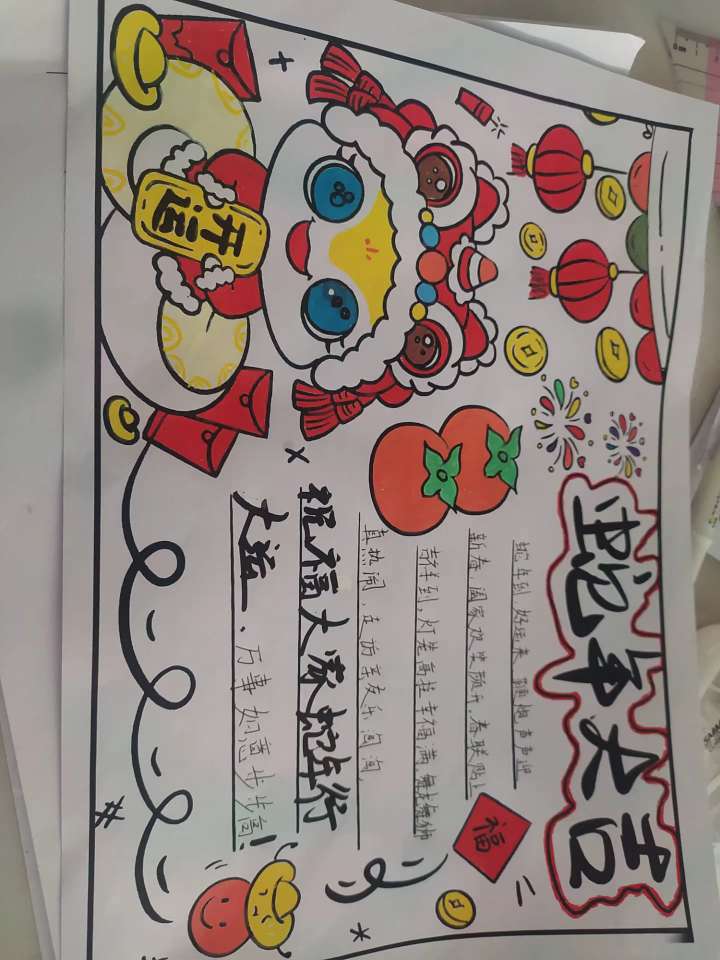 蛇年大吉
蛇年到,好运来,鞭炮声声迎
新春,阖家欢笑颜开,春联贴上
吉祥到,灯笼高挂幸福满,舞龙舞狮
真热闹,走访亲友乐淘淘
祝福大家蛇年行
大运,万事如意步步高!
开运
福